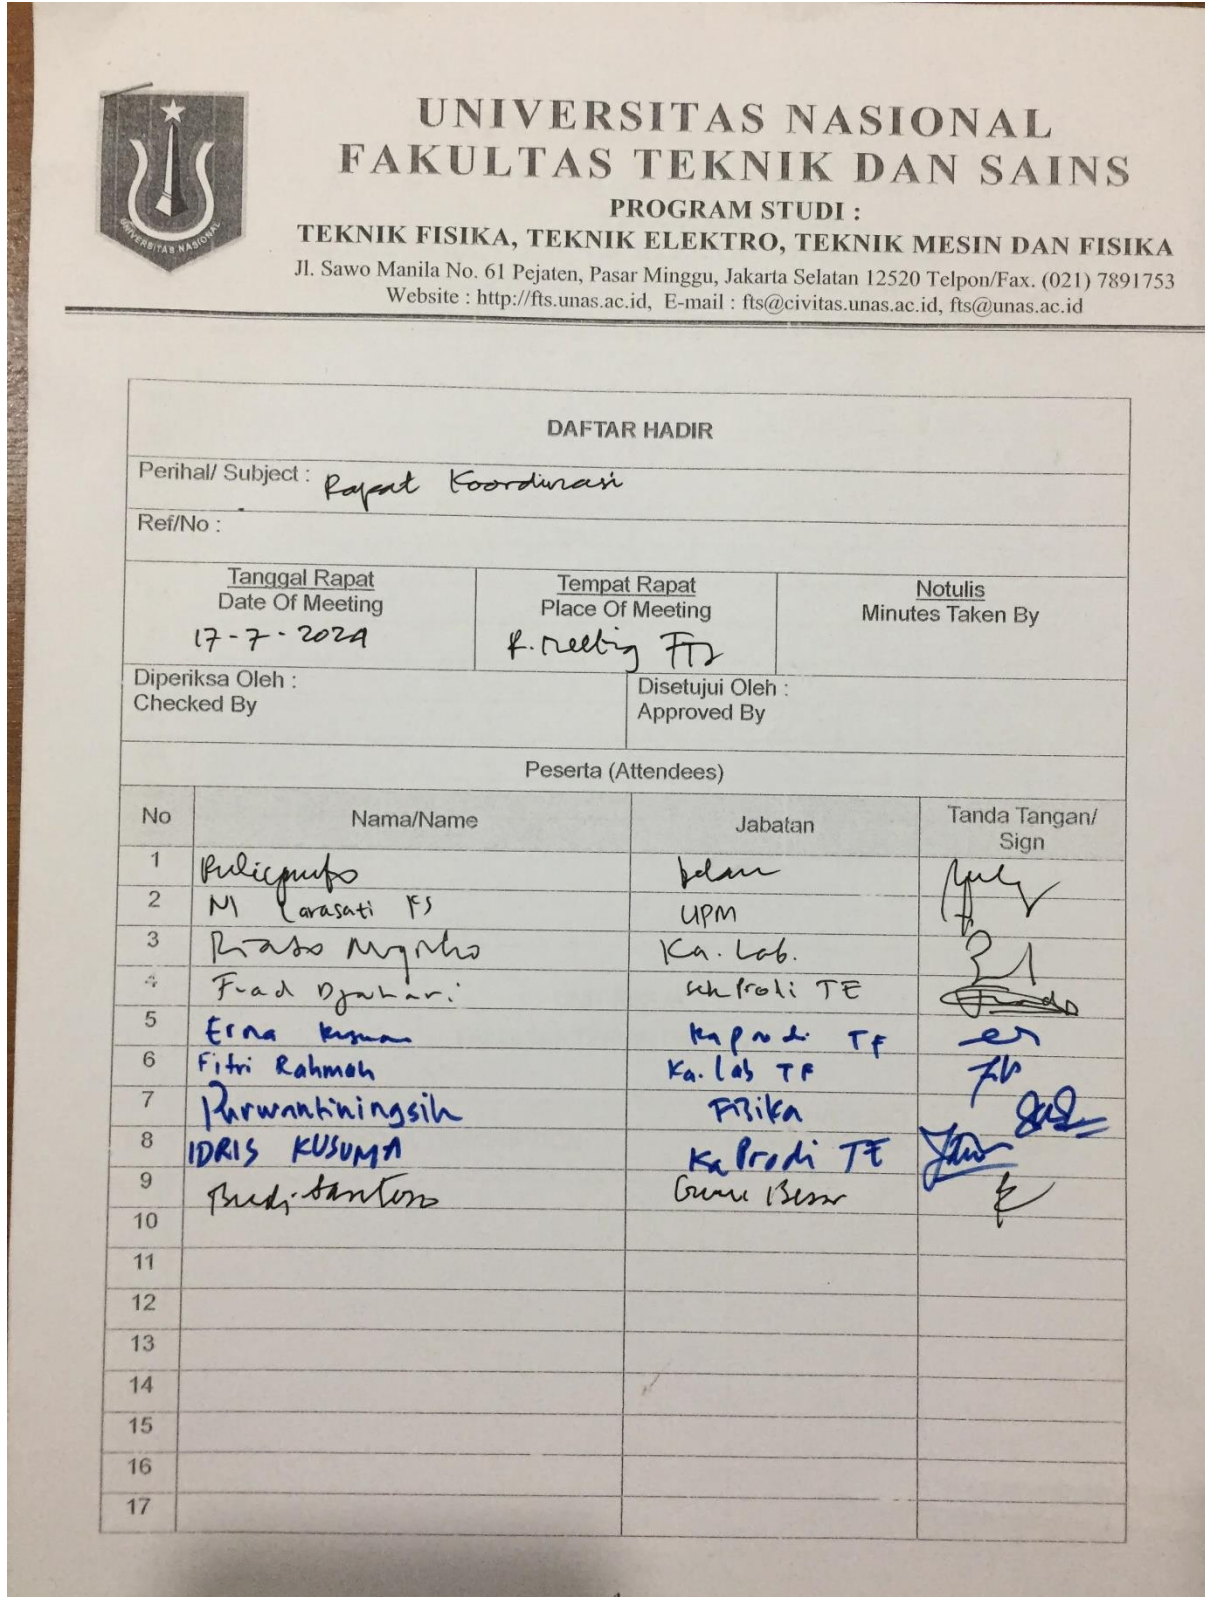 UNIVERSITAS NASIONAL
UNIVERSITAS NASIONAL
FAKULTAS TEKNIK DAN SAINS
PROGRAM STUDI :
TEKNIK FISIKA, TEKNIK ELEKTRO, TEKNIK MESIN DAN FISIKA
Jl. Sawo Manila No. 61 Pejaten, Pasar Minggu, Jakarta Selatan 12520 Telpon/Fax. (021) 7891753
Website : http://fts.unas.ac.id, E-mail : fts@civitas.unas.ac.id, fts@unas.ac.id
DAFTAR HADIR
Perihal/ Subject : Rapat Koordinasi
Ref/No :
Tanggal Rapat Tempat Rapat Notulis
Date Of Meeting Place Of Meeting Minutes Taken By
17-7-2024 R. Meeting FTS
Diperiksa Oleh : Disetujui Oleh :
Checked By Approved By
Peserta (Attendees)
No Nama/Name Jabatan Tanda Tangan/
Sign
1
2 Larasati KS UPM
3 Ka. Lab.
4 Fuad Djauhari TE
5 Erna Kaprodi TF
6 Fitri Rahmah Ka. Lab TF
7 Purwantiningsih Fisika
8 IDRIS KUSUMA Ka Prodi TE
9 Budi Santoso Guru Besar
10
11
12
13
14
15
16
17